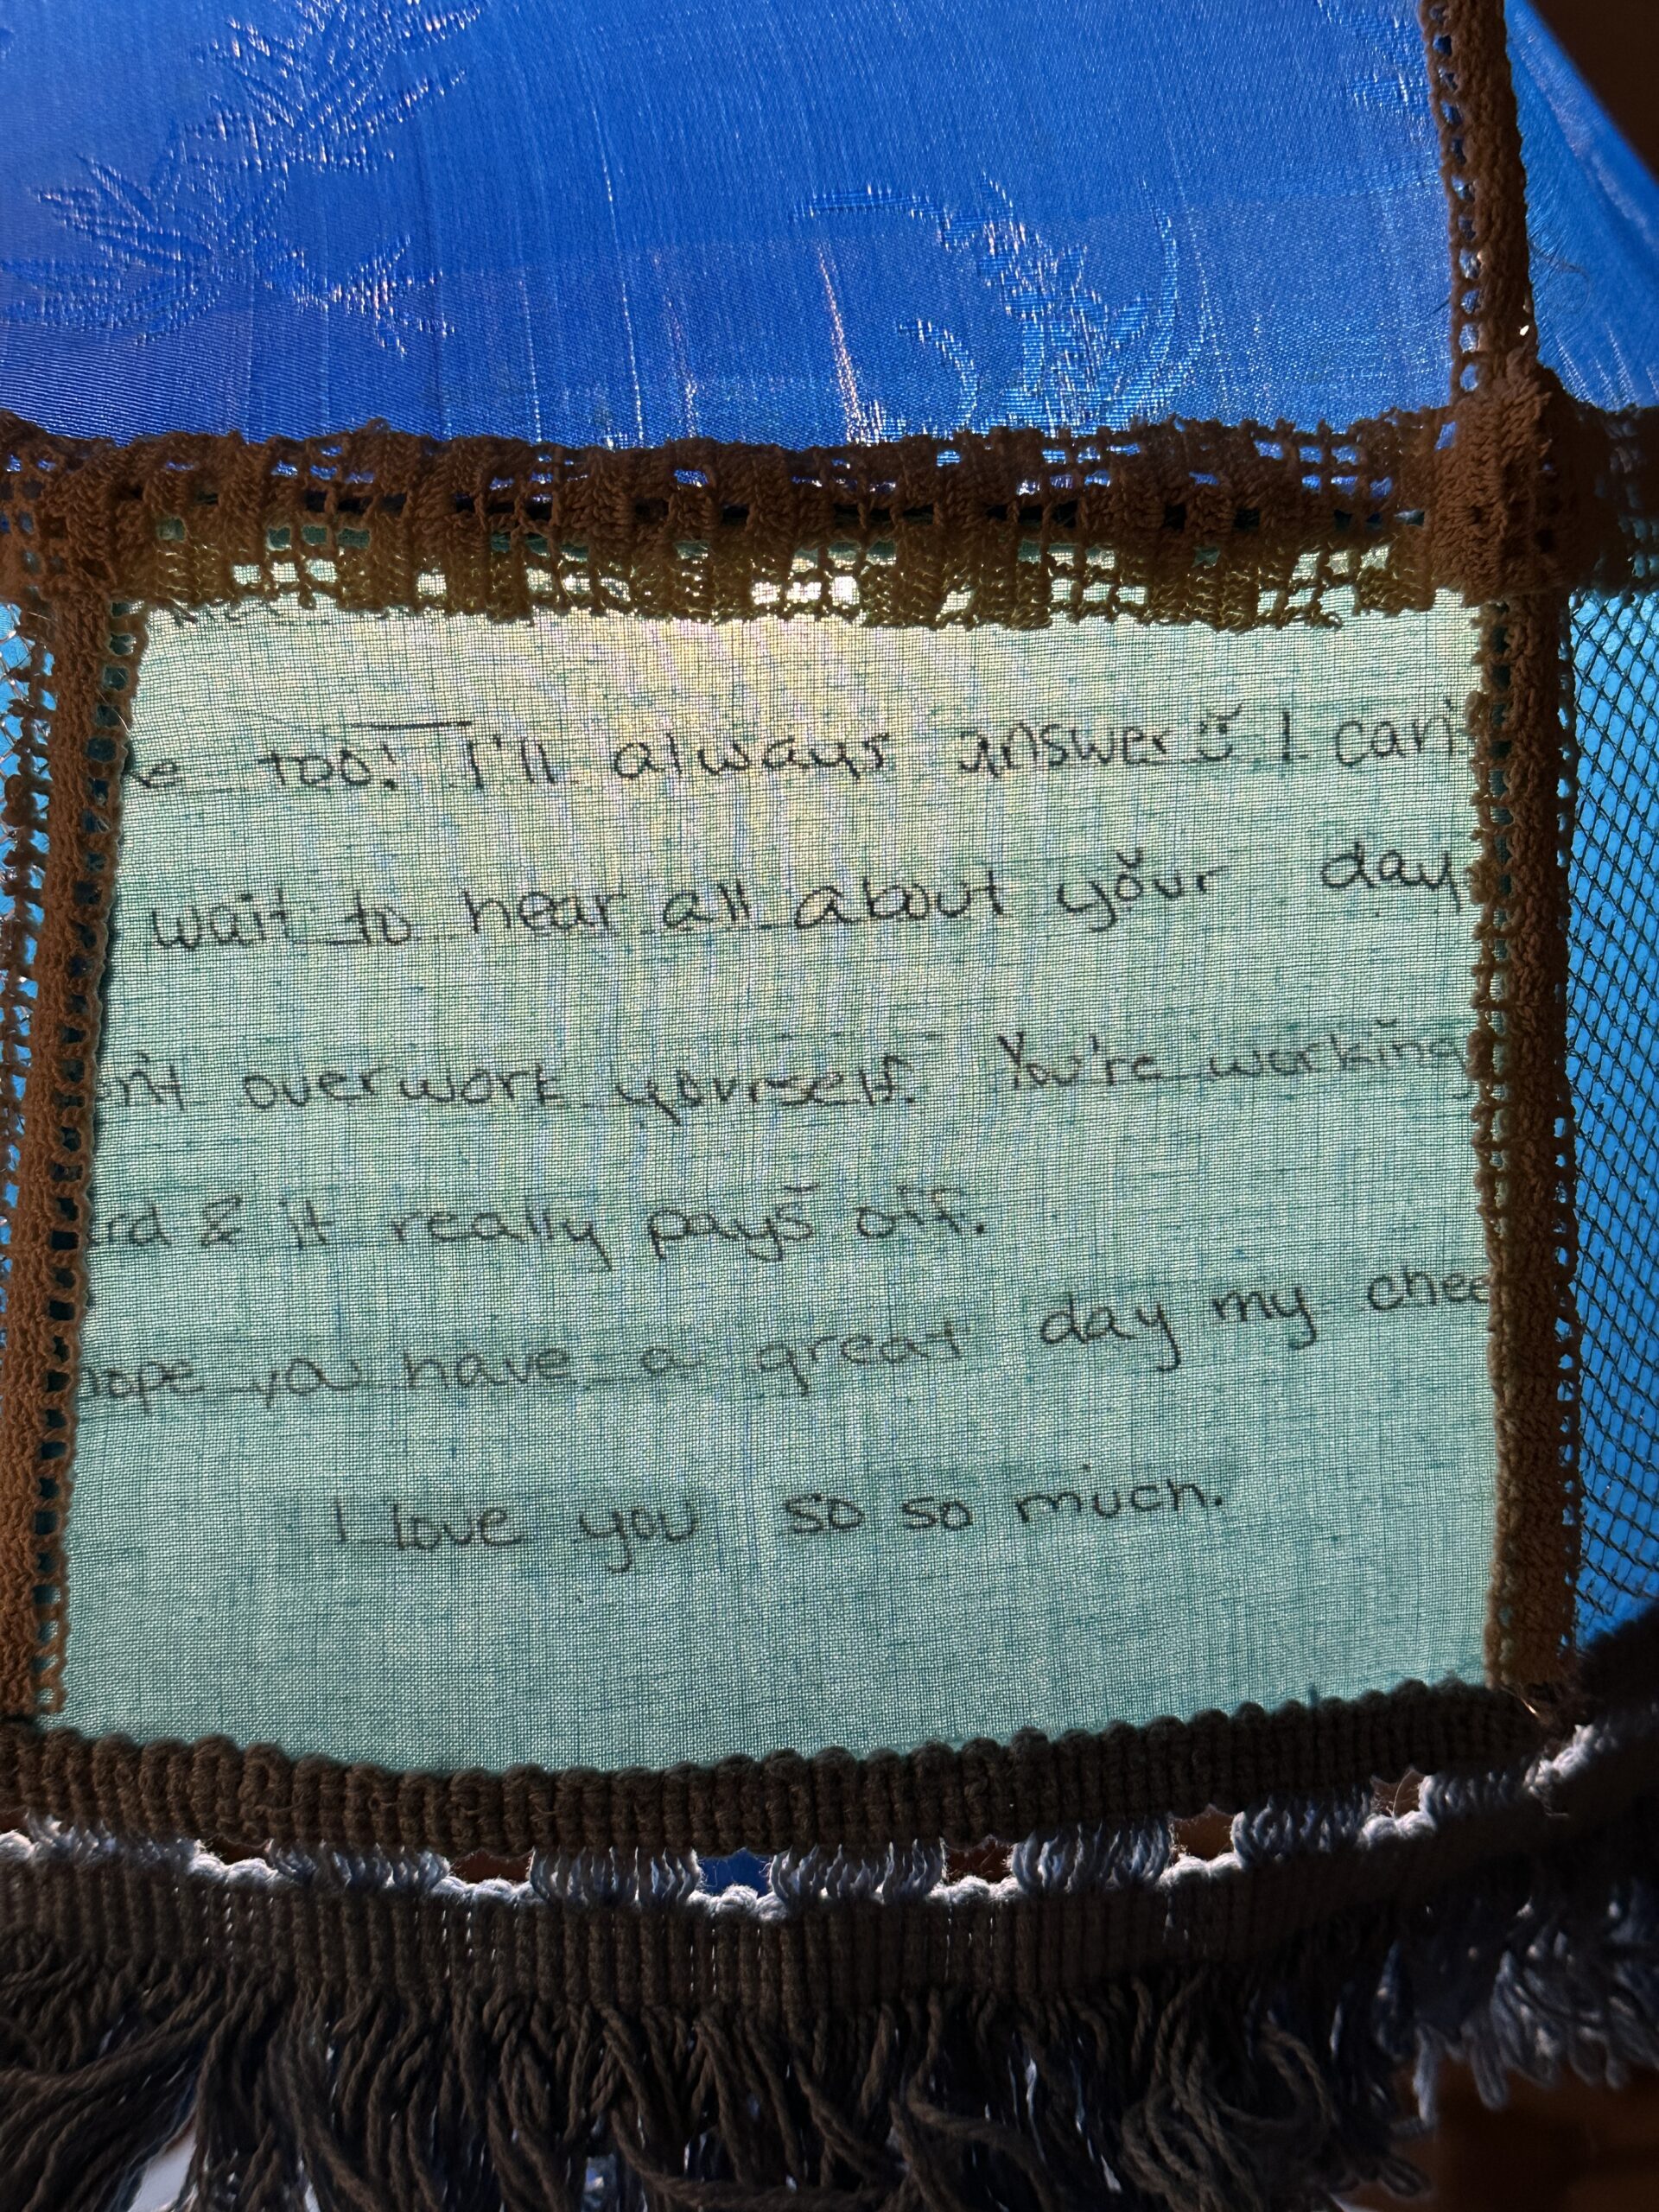 too! I'll always answer I can't
wait to hear all about your day
overwork yourself. You're working
& it really pays off.
hope you have a great day my
I love you so so much.